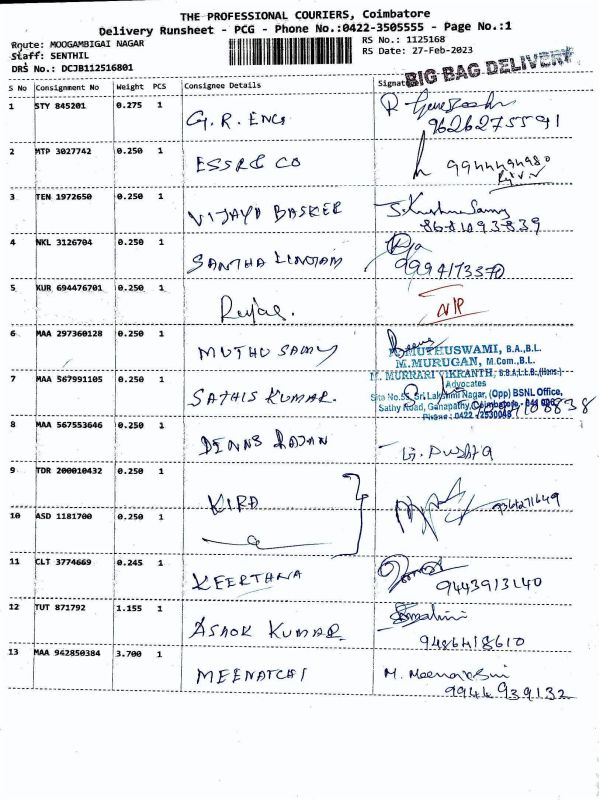 THE PROFESSIONAL COURIERS, Coimbatore
Delivery Runsheet - PCG - Phone No.:0422-3505555 - Page No.:1
Route: MOOGAMBIGAI NAGAR RS No.: 1125168
Staff: SENTHIL RS Date: 27-Feb-2023
DRS No.: DCJB112516801
BIG BAG DELIVERY
S No Consignment No Weight PCS Consignee Details Signat
1 STY 845201 0.275 1 G.R. ENG
9626275591
2 MTP 3027742 0.250 1 ESSRE CO 9944494980
3 TEN 1972650 0.250 1 VIJAYA BASKER S.Krishna Samy
8681093839
4 NKL 3126704 0.250 1 SANTHA LINGAM Raja
9994173370
5 KUR 694476701 0.250 1 Rujas. N/P
6 MAA 297360128 0.250 1 MUTHU SAMY
M.MUTHUSWAMI, B.A.,B.L.
M.MURUGAN, M.Com.,B.L.
M. MURRARI VIKRANTH, B.B.A.,L.L.B.,(Hons.)
Advocates
7 MAA 567991105 0.250 1 SATHIS KUMAR.
Site No.53, Sri Lakshmi Nagar, (Opp) BSNL Office,
Sathy Road, Ganapathy, Coimbatore - 641 006.
Phone : 0422 - 2530045
8 MAA 567553646 0.250 1 DENNS RAJAN G. Pushpa
9 TDR 200010432 0.250 1 KIRA
10 ASD 1181700 0.250 1
11 CLT 3774669 0.245 1 KEERTHNA
9443913140
12 TUT 871792 1.155 1 ASHOK KUMAR
9486418610
13 MAA 942850384 3.700 1 MEENATCHI M. Meenakshi
9944939132